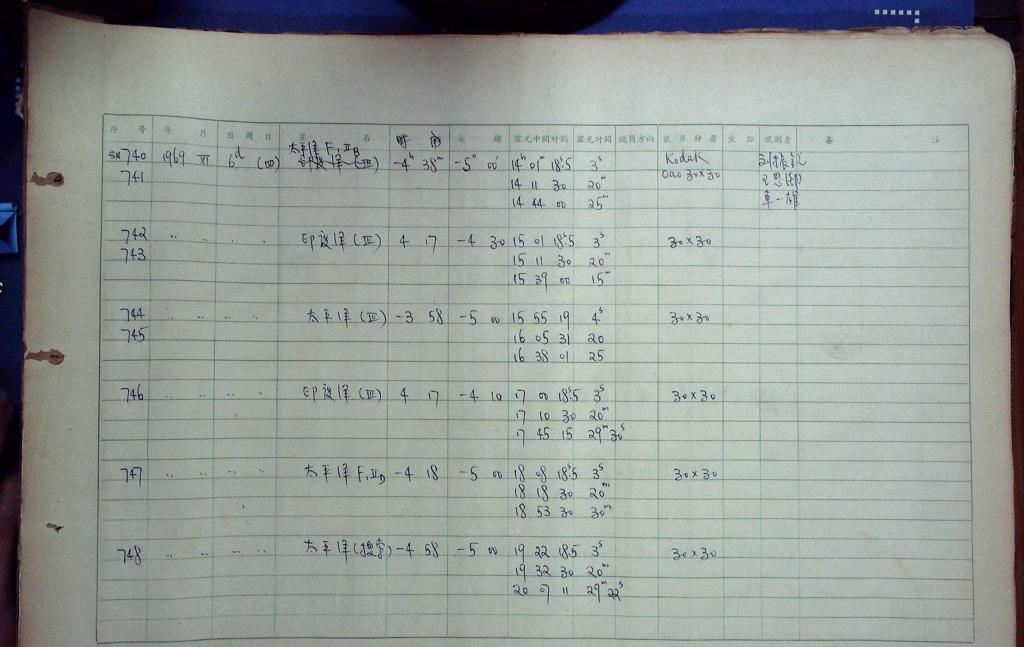 序号 年 月 日 周日 星 名 时角 赤 纬 露光中间时刻 露光时间 镜筒方向 底片种类 焦距 观测者 备 注
太平洋F,ⅡB
SN740 1969 Ⅺ 6d (四) 印度洋(Ⅲ) -4h 38m -5° 00' 14h 01m 18s5 3s Kodak
741 14 11 30 20m OaO 30×30
14 44 00 25m 车一雄
742 〃 〃 〃 〃 印度洋(Ⅲ) 4 17 -4 30 15 01 18s5 3s 30×30
743 15 11 30 20m
15 39 00 15m
744 〃 〃 〃 〃 太平洋(Ⅲ) -3 58 -5 00 15 55 19 4s 30×30
745 16 05 31 20
16 38 01 25
746 〃 〃 〃 〃 印度洋(Ⅲ) 4 17 -4 10 17 00 18s5 3s 30×30
17 10 30 20m
17 45 15 29m 30s
747 〃 〃 〃 〃 太平洋F,ⅡD -4 18 -5 00 18 08 18s5 3s 30×30
18 18 30 20m
18 53 30 30m
748 〃 〃 〃 〃 太平洋(搜索) -4 58 -5 00 19 22 18.5 3s 30×30
19 32 30 20m
20 07 11 29m 22s